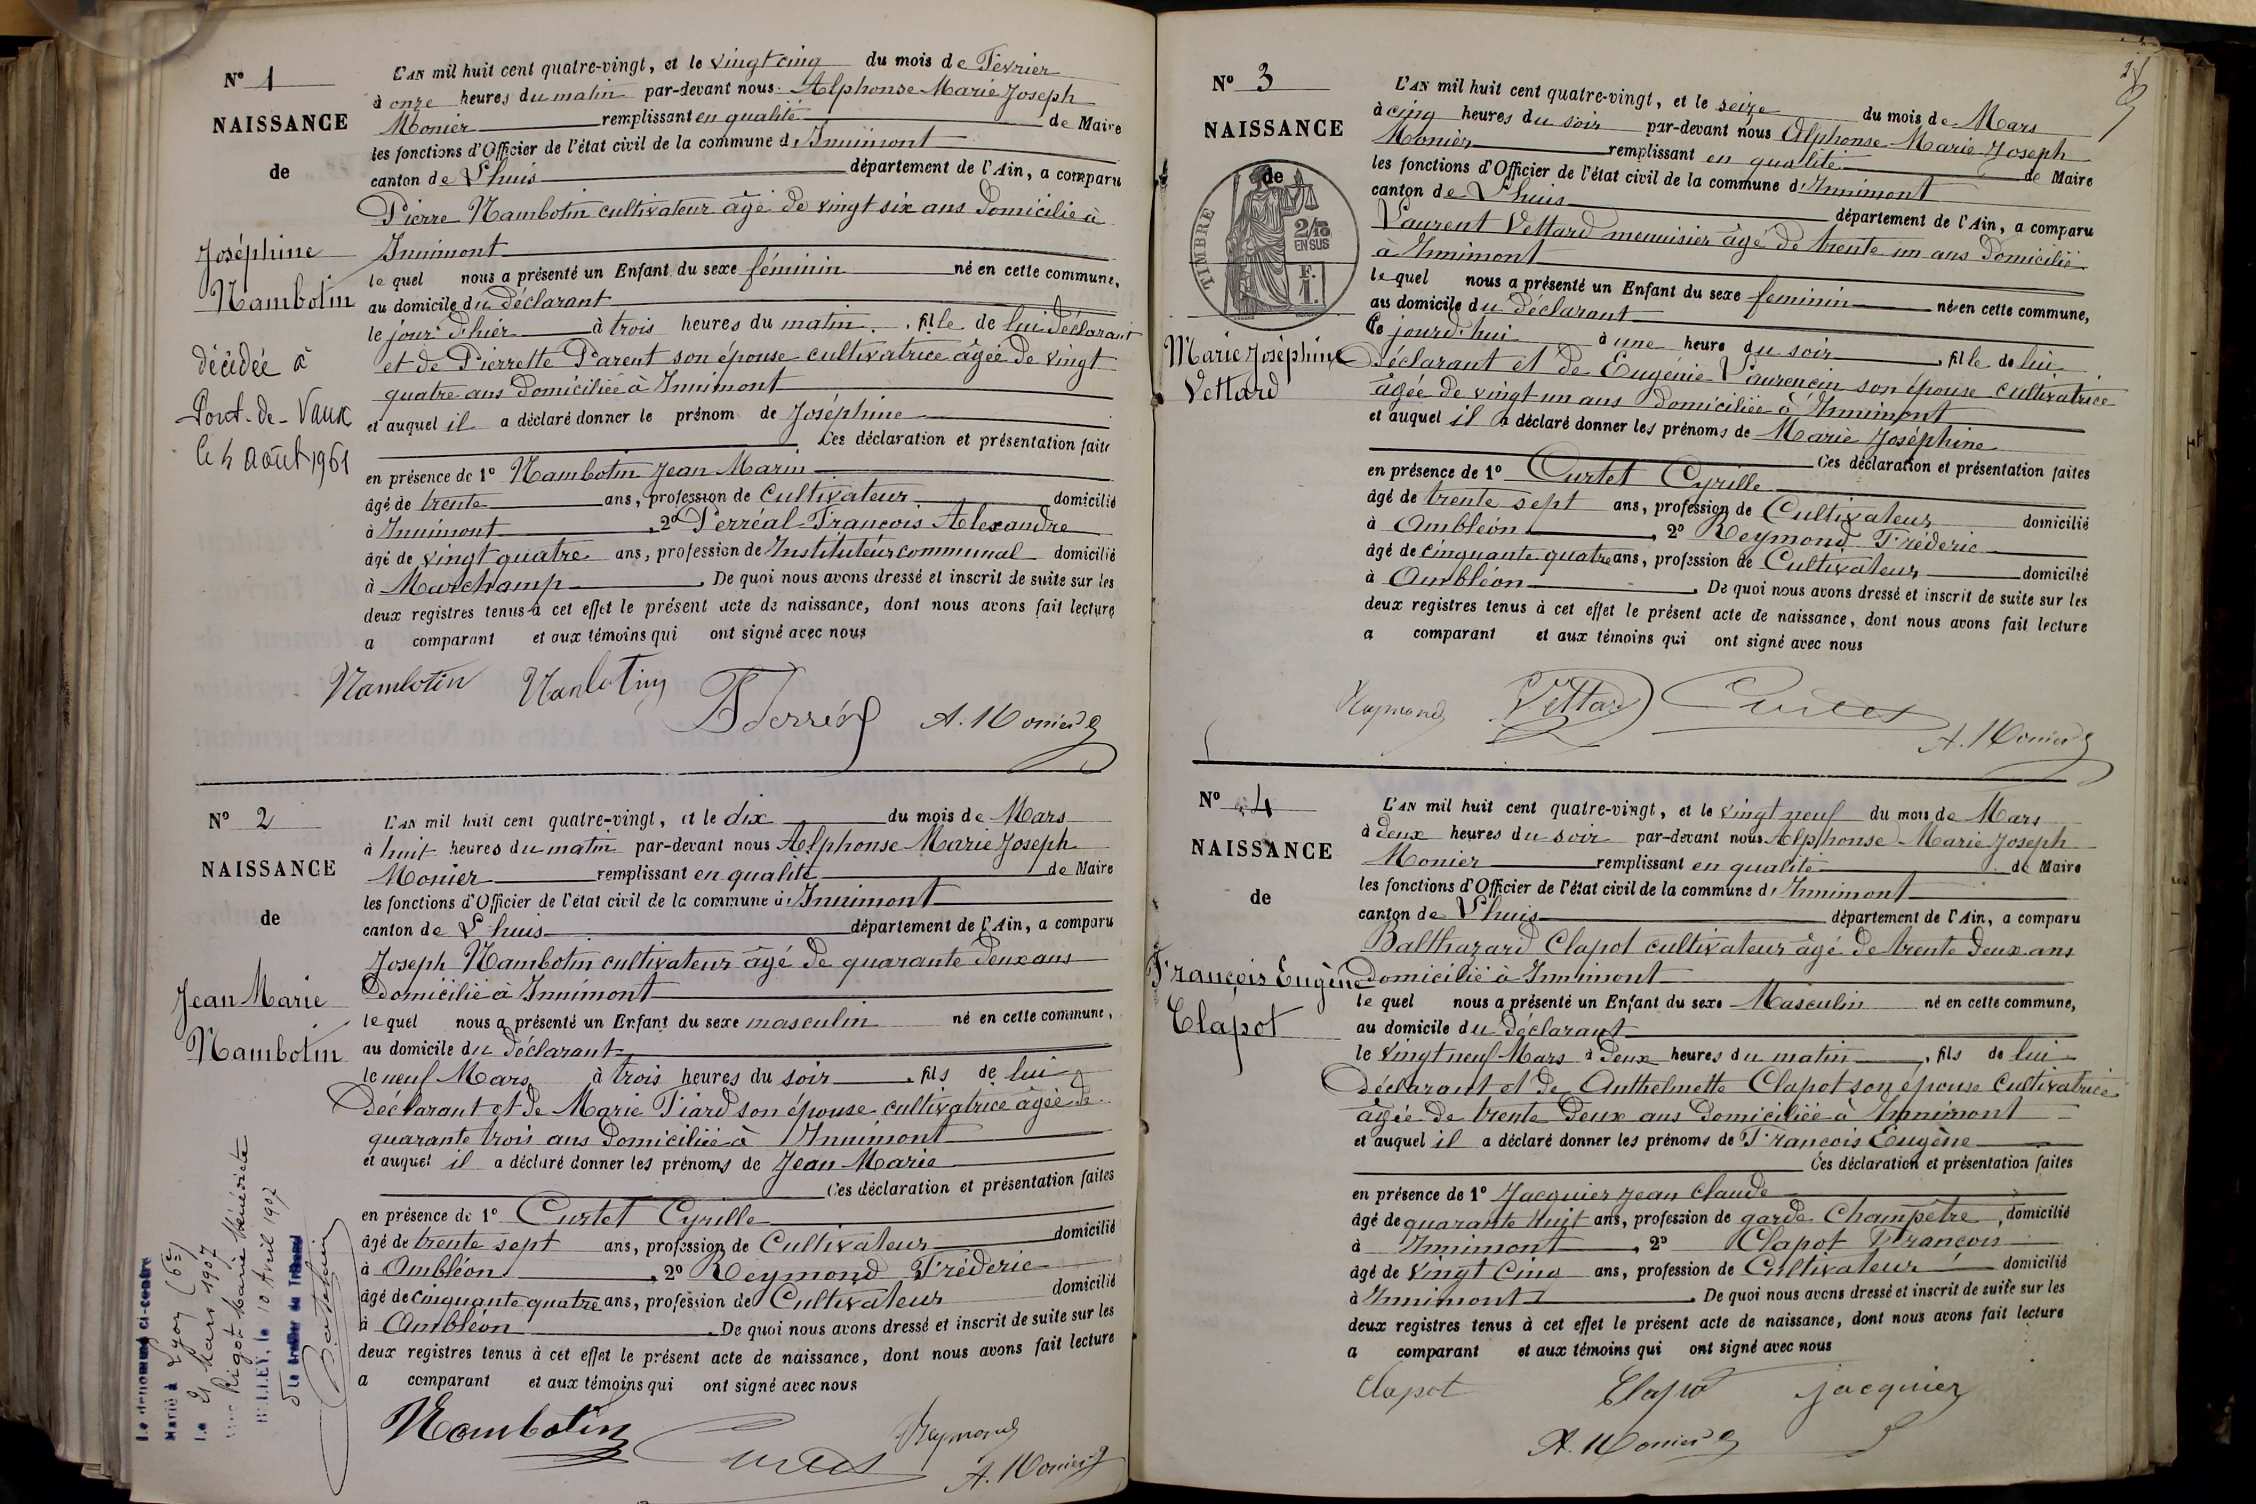 N° 1
NAISSANCE
de
Joséphine
Nambotin
décédée à
Pont-de-Vaux
le 4 août 1961
L'AN mil huit cent quatre-vingt, et le vingt cinq du mois de Février
à onze heures du matin par-devant nous Alphonse Marie Joseph
Monier remplissant en qualité de Maire
les fonctions d'Officier de l'état civil de la commune d'Innimont
canton de Lhuis département de l'Ain, a comparu
Pierre Nambotin cultivateur âgé de vingt six ans domicilié à
Innimont
le quel nous a présenté un Enfant du sexe féminin né en cette commune,
au domicile du déclarant
le jour d'hier à trois heures du matin, fille de lui déclarant
et de Pierrette Parent son épouse cultivatrice âgée de vingt
quatre ans domiciliée à Innimont
et auquel il a déclaré donner le prénom de Joséphine
Ces déclaration et présentation faite
en présence de 1° Nambotin Jean Marin
âgé de trente ans, profession de cultivateur domicilié
à Innimont, 2° Perréal François Alexandre
âgé de vingt quatre ans, profession de Instituteur communal domicilié
à Marchamp. De quoi nous avons dressé et inscrit de suite sur les
deux registres tenus à cet effet le présent acte de naissance, dont nous avons fait lecture
a comparant et aux témoins qui ont signé avec nous
Nambotin Nambotin Perréal A. Monier
N° 2
NAISSANCE
de
Jean Marie
Nambotin
Le dénommé ci-contre
Marié à Lyon (6e)
Le 21 Mars 1907
avec Rigot Marie Bénédicte
BELLEY, le 10 Avril 1907
Le Greffier du Tribunal
L'AN mil huit cent quatre-vingt, et le dix du mois de Mars
à huit heures du matin par-devant nous Alphonse Marie Joseph
Monier remplissant en qualité de Maire
les fonctions d'Officier de l'état civil de la commune d'Innimont
canton de Lhuis département de l'Ain, a comparu
Joseph Nambotin cultivateur âgé de quarante deux ans
domicilié à Innimont
le quel nous a présenté un Enfant du sexe masculin né en cette commune,
au domicile du déclarant
le neuf Mars à trois heures du soir, fils de lui
déclarant et de Marie Piard son épouse cultivatrice âgée de
quarante trois ans domiciliée à Innimont
et auquel il a déclaré donner les prénoms de Jean Marie
Ces déclaration et présentation faites
en présence de 1° Curtet Cyrille
âgé de trente sept ans, profession de Cultivateur domicilié
à Ambléon, 2° Reymond Fréderic
âgé de cinquante quatre ans, profession de Cultivateur domicilié
à Ambléon. De quoi nous avons dressé et inscrit de suite sur les
deux registres tenus à cet effet le présent acte de naissance, dont nous avons fait lecture
a comparant et aux témoins qui ont signé avec nous
Nambotin Curtet Reymond A. Monier
N° 3
NAISSANCE
de
TIMBRE
2/10
EN SUS
F.
1.
Marie Joséphine
Vettard
L'AN mil huit cent quatre-vingt, et le seize du mois de Mars
à cinq heures du soir par-devant nous Alphonse Marie Joseph
Monier remplissant en qualité de Maire
les fonctions d'Officier de l'état civil de la commune d'Innimont
canton de Lhuis département de l'Ain, a comparu
Laurent Vettard menuisier âgé de trente un ans domicilié
à Innimont
le quel nous a présenté un Enfant du sexe feminin né en cette commune,
au domicile du déclarant
ce jourd'hui à une heure du soir, fille de lui
déclarant et de Eugénie Laurencin son épouse cultivatrice
âgée de vingt un ans domiciliée à Innimont
et auquel il a déclaré donner les prénoms de Marie Joséphine
Ces déclaration et présentation faites
en présence de 1° Curtet Cyrille
âgé de trente sept ans, profession de Cultivateur domicilié
à Ambléon, 2° Reymond Fréderic
âgé de cinquante quatre ans, profession de Cultivateur domicilié
à Ambléon. De quoi nous avons dressé et inscrit de suite sur les
deux registres tenus à cet effet le présent acte de naissance, dont nous avons fait lecture
a comparant et aux témoins qui ont signé avec nous
Reymond Vettard Curtet A. Monier
N° 4
NAISSANCE
de
François Eugène
Clapot
L'AN mil huit cent quatre-vingt, et le vingt neuf du mois de Mars
à deux heures du soir par-devant nous Alphonse Marie Joseph
Monier remplissant en qualité de Maire
les fonctions d'Officier de l'état civil de la commune d'Innimont
canton de Lhuis département de l'Ain, a comparu
Balthazard Clapot cultivateur âgé de trente deux ans
domicilié à Innimont
le quel nous a présenté un Enfant du sexe Masculin né en cette commune,
au domicile du déclarant
le vingt neuf Mars à deux heures du matin, fils de lui
déclarant et de Anthelmette Clapot son épouse Cultivatrice
âgée de trente deux ans domiciliée à Innimont
et auquel il a déclaré donner les prénoms de François Eugène
Ces déclaration et présentation faites
en présence de 1° Jacquier Jean Claude
âgé de quarante huit ans, profession de garde Champêtre, domicilié
à Innimont, 2° Clapot François
âgé de vingt cinq ans, profession de Cultivateur domicilié
à Innimont. De quoi nous avons dressé et inscrit de suite sur les
deux registres tenus à cet effet le présent acte de naissance, dont nous avons fait lecture
a comparant et aux témoins qui ont signé avec nous
Clapot Clapot Jacquier
A. Monier